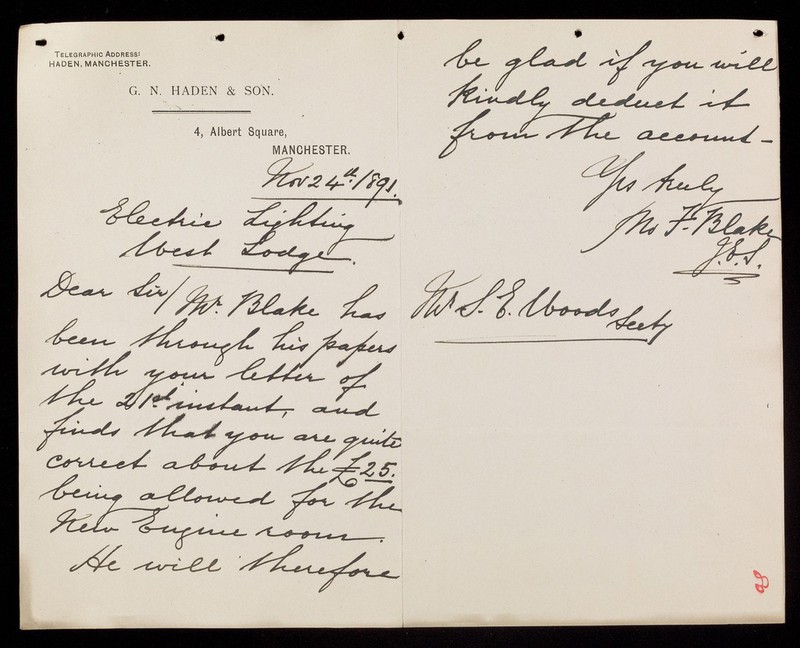 TELEGRAPHIC ADDRESS:
HADEN, MANCHESTER.
G. N. HADEN & SON.
4, Albert Square,
MANCHESTER.
Nov 24th 1891.
Electric Lighting
West Lodge.
Dear Sir/ Mr. Blake has
been through his papers
with your letter of
the 21st instant, and
finds that you are quite
correct about the £25.
being allowed for the
New Engine room.
He will therefore
be glad if you will
kindly deduct it
from the account -
Yrs truly
F. Blake
J.E.S.
Mr S. E. Woods
Secty